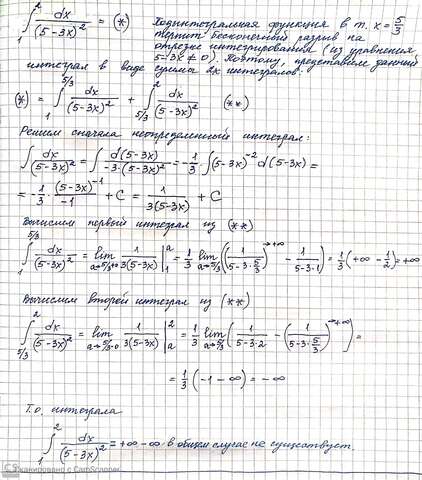 ∫₁² dx/(5-3x)² = (*) Подинтегральная функция в т. x = 5/3
терпит бесконечный разрыв на
отрезке интегрирования (из уравнения
5-3x ≠ 0). Поэтому, представляем данный
интеграл в виде суммы 2х интегралов:
(*) = ∫₁^(5/3) dx/(5-3x)² + ∫_(5/3)^2 dx/(5-3x)² (**)
Решим сначала неопределенный интеграл:
∫ dx/(5-3x)² = ∫ d(5-3x)/(-3·(5-3x)²) = -1/3 · ∫(5-3x)⁻² d(5-3x) =
= -1/3 · (5-3x)⁻¹/(-1) + C = 1/(3(5-3x)) + C
Вычислим первый интеграл из (**)
∫₁^(5/3) dx/(5-3x)² = lim 1/(3(5-3x)) |₁^a = 1/3 lim (1/(5-3·5/3)^(→+∞) - 1/(5-3·1)) = 1/3 (+∞ - 1/2) = +∞
Вычислим второй интеграл из (**)
∫_(5/3)^2 dx/(5-3x)² = lim_(a→5/3-0) 1/(3(5-3x)) |_a^2 = 1/3 lim_(a→5/3) (1/(5-3·2) - (1/(5-3·5/3))^(→+∞)) =
= 1/3 (-1 - ∞) = -∞
Т.о. интеграла
∫₁² dx/(5-3x)² = +∞ - ∞ · в общем случае не существует.
CS Сканировано с CamScanner